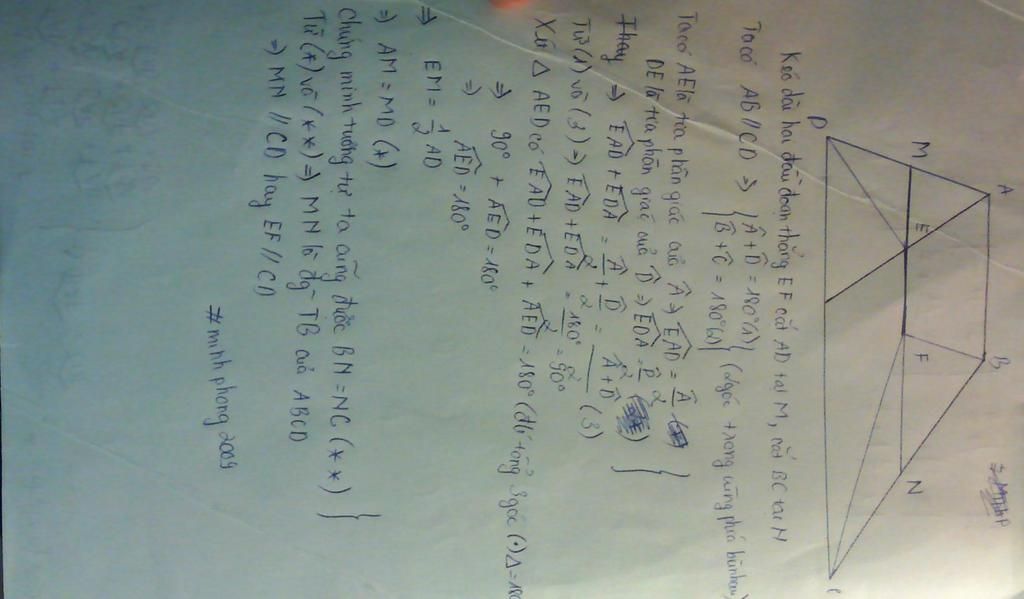 A
B
M
E
F
N
D
C
Kéo dài hai đầu đoạn thẳng EF cắt AD tại M, cắt BC tại N
Ta có AB // CD => { Â + D̂ = 180° (1)
B̂ + Ĉ = 180° (2) } (2góc trong cùng phía bù nhau)
Ta có AE là tia phân giác của Â => EAD = Â/2
DE là tia phân giác của D̂ => EDA = D̂/2 }
=> EAD + EDA = Â/2 + D̂/2 = Â + D̂/2 (3)
Từ (1) và (3) => EAD + EDA = 180°/2 = 90°
Xét Δ AED có EAD + EDA + AED = 180° (đlí tổng 3 góc (•) Δ = 180
=> 90° + AED = 180°
=> AED = 180°
=> EM = 1/2 AD
=> AM = MD (*)
Chứng minh tương tự ta cũng được BN = NC (**) }
Từ (*) và (**) => MN là đg TB của ABCD
=> MN // CD hay EF // CD
#minhphong2009